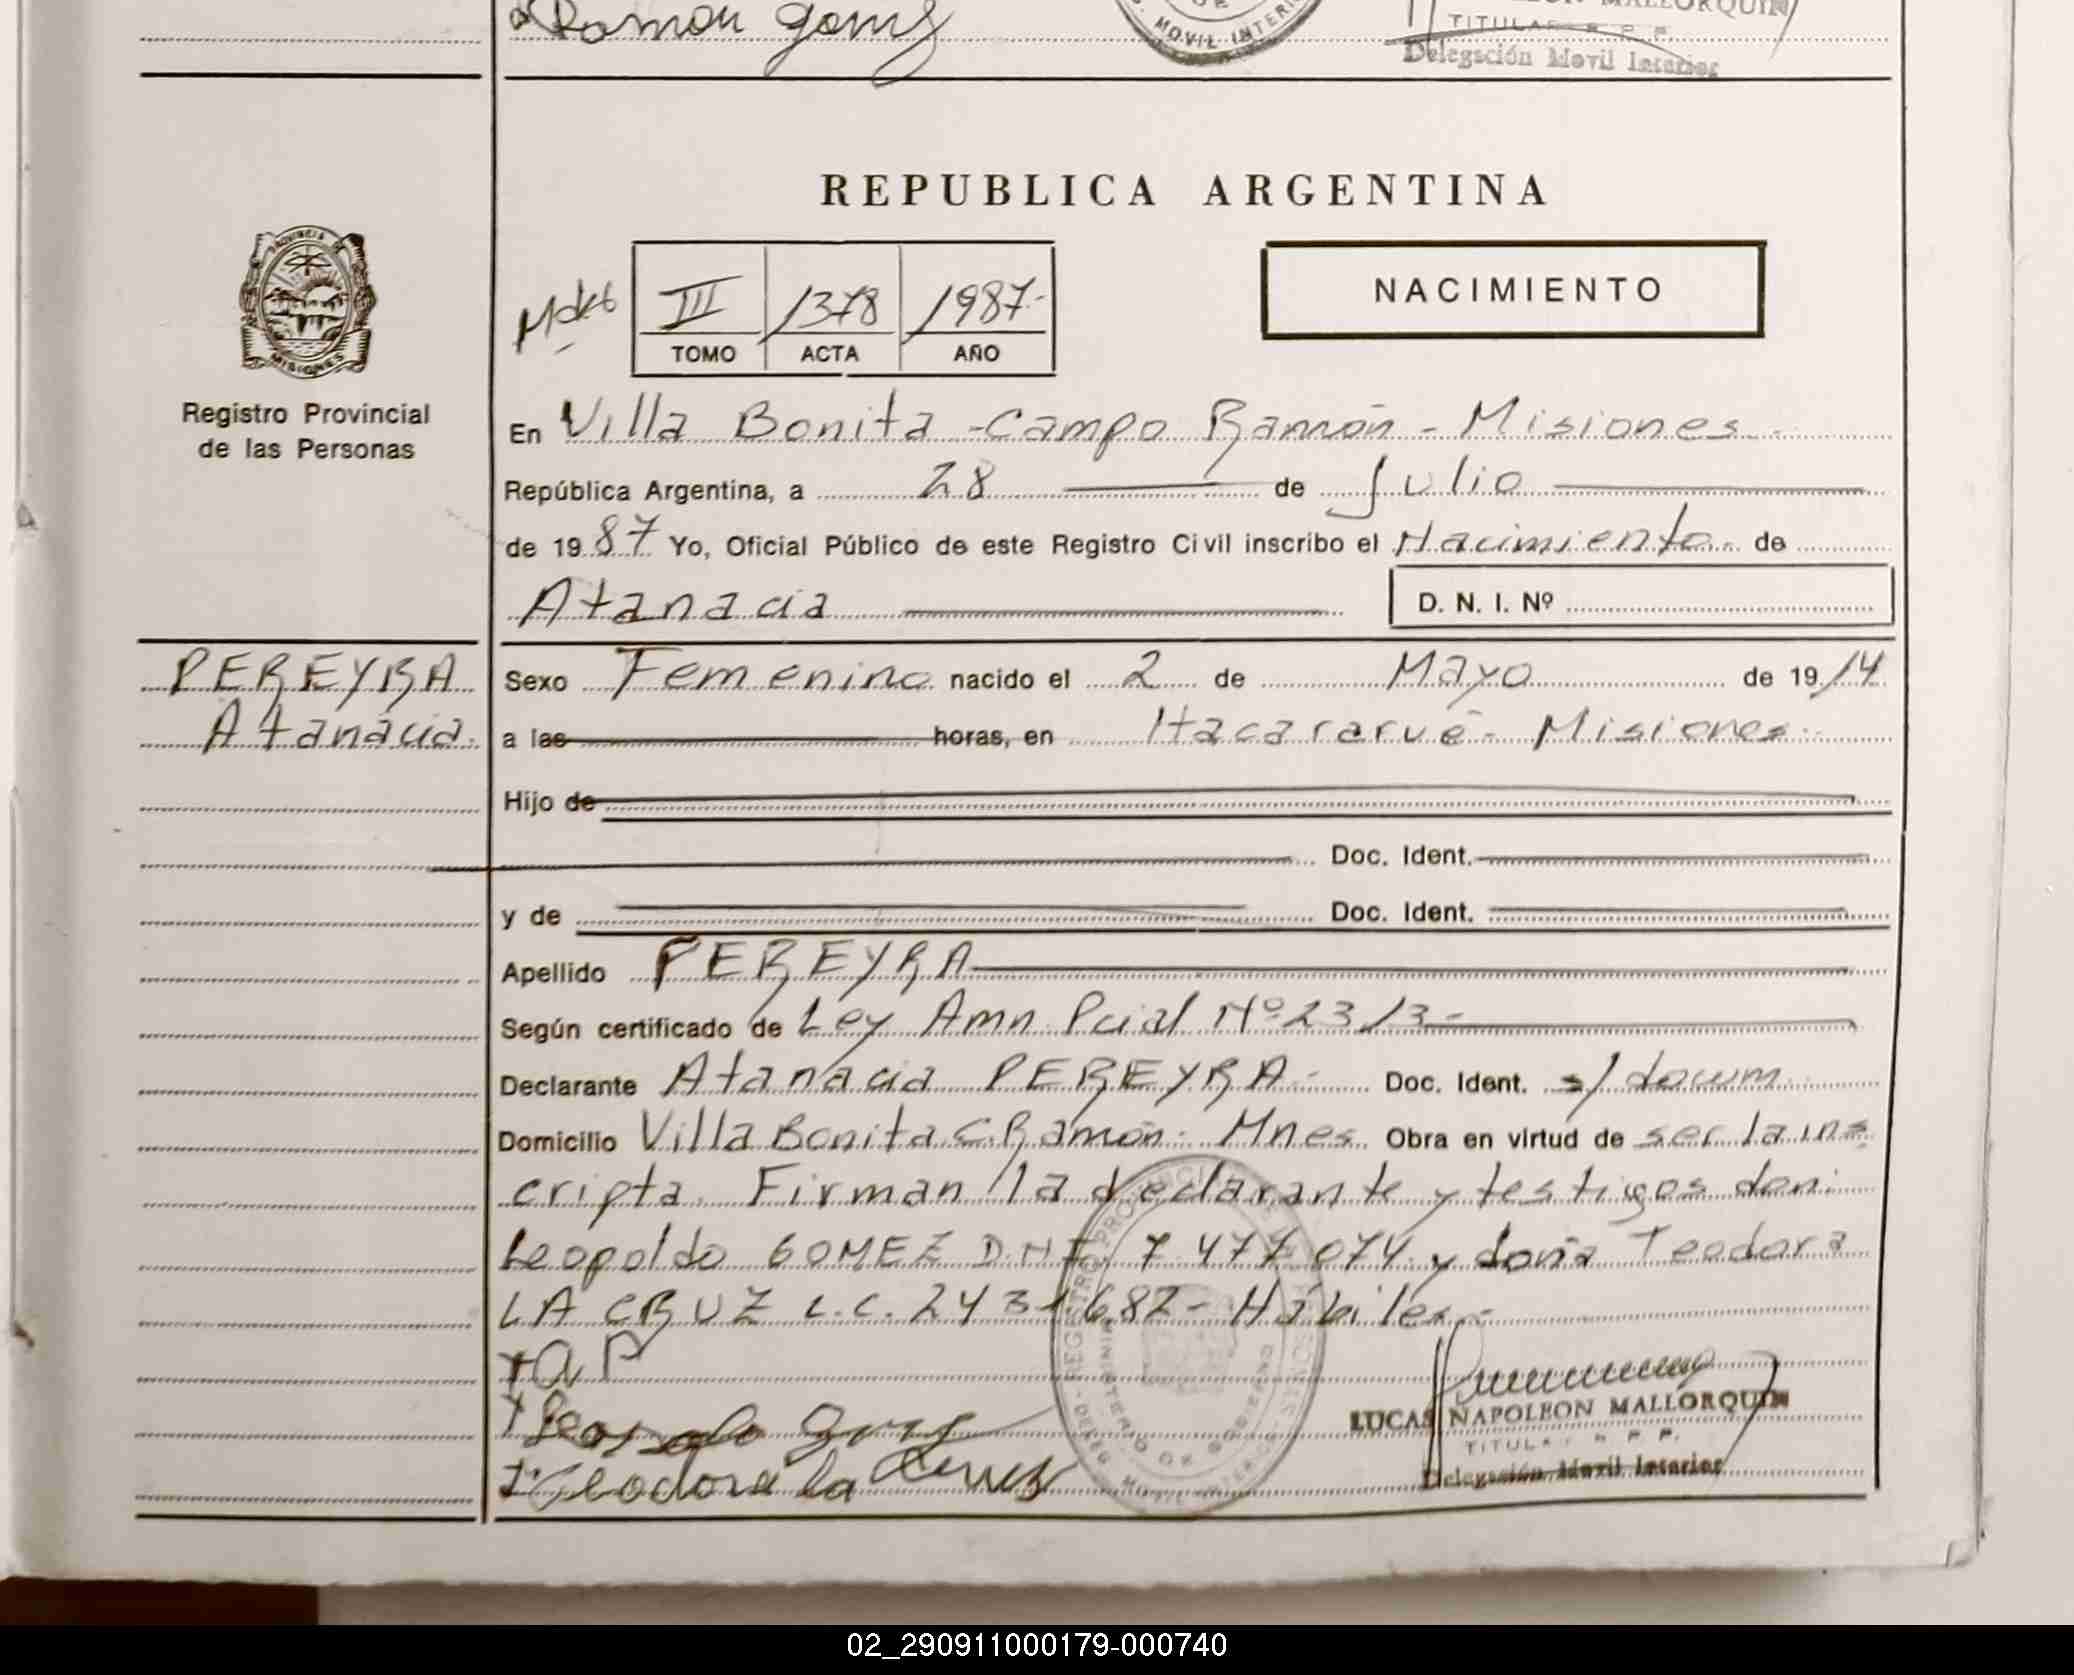 Ramón Gomez
MOVIL INTERI
MALLORQUIN
TITULAR R. P. P.
Delegación Movil Interior
REPUBLICA ARGENTINA
III 1378 1987.-
TOMO ACTA AÑO
NACIMIENTO
PROVINCIA DE
MISIONES
Registro Provincial
de las Personas
En Villa Bonita - Campo Ramón - Misiones.-
República Argentina, a 28 de Julio
de 1987 Yo, Oficial Público de este Registro Civil inscribo el Nacimiento de
Atanacia
D. N. I. Nº
PEREYRA
Atanacia.
Sexo Femenino nacido el 2 de Mayo de 1914
a las horas, en Itacararué - Misiones.-
Hijo de
Doc. Ident.
y de Doc. Ident.
Apellido PEREYRA
Según certificado de Ley Amn. Pcial Nº 2313-
Declarante Atanacia PEREYRA.- Doc. Ident. s/docum.
Domicilio Villa Bonita C. Ramón.- Mnes. Obra en virtud de ser la ins
cripta. Firman la declarante y testigos don:
Leopoldo GOMEZ D.N.I. 7.477.074. y doña Teodora
LA CRUZ L.C. 2431682- Hábiles.-
+ a P
+ Leopoldo Gomez
+ Teodora la Cruz
LUCAS NAPOLEON MALLORQUIN
TITULAR R. P. P.
Delegación Movil Interior
02_290911000179-000740